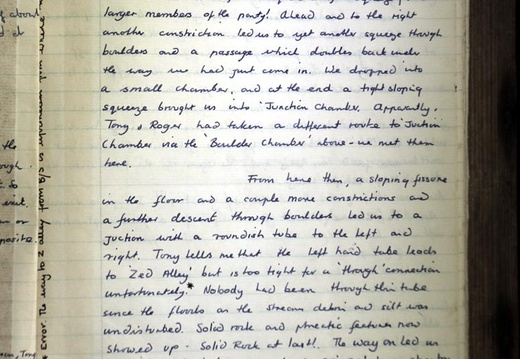 larger members of the party! Ahead and to the right
another constriction led us to yet another squeeze through
boulders and a passage which doubles back under
the way we had just come in. We dropped into
a small chamber, and at the end a tight sloping
squeeze brought us into 'Junction Chamber. Apparently,
Tony & Roger had taken a different route to 'Juction
Chamber via the 'Boulder Chamber' above - we met them
here.
From here then, a sloping fissure
in the floor and a couple more constrictions and
a further descent through boulders led us to a
juction with a roundish tube to the left and
right. Tony tells me that the left hand tube leads
to 'Zed Alley' but is too tight for a 'through' connection
unfortunately.* Nobody had been through this tube
since the floods as the stream debris and silt was
undisturbed. Solid rock and phreatic features now
showed up - Solid Rock at last!. The way on led us
* Error. The way to Z alley from B/S is upstream from where
of about
the
ough.
exit,
or
posite
Tony